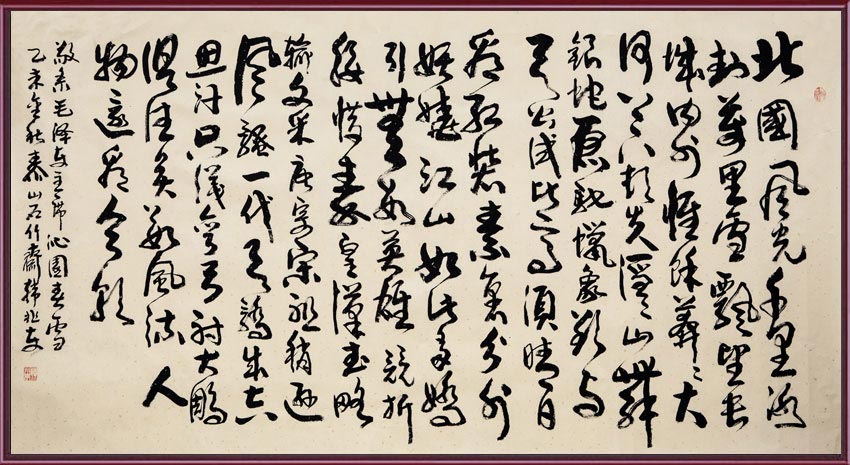 北國风光千里冰
封萬里雪飄望長
城内外惟餘莽々大
河上下頓失滔々山舞
銀蛇原馳蠟象欲與
天公試比高須晴日
看紅裝素裹分外
妖嬈江山如此多嬌
引無數英雄競折
腰惜秦皇漢武略
輸文采唐宗宋祖稍遜
风騷一代天驕成吉
思汗只識彎弓射大鵰
俱往矣數風流人
物還看今朝
敬录毛泽东主席沁園春雪
乙未金秋泰山石竹齋韩